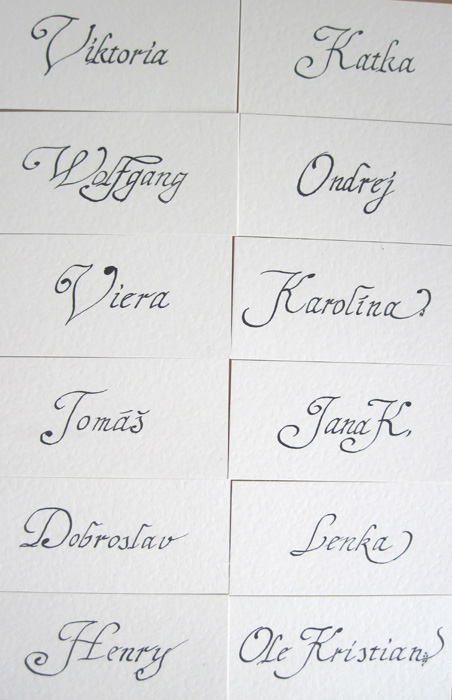 Viktoria
Katka
Wolfgang
Ondrej
Viera
Karolína
Tomáš
Jana K.
Dobroslav
Lenka
Henry
Ole Kristian